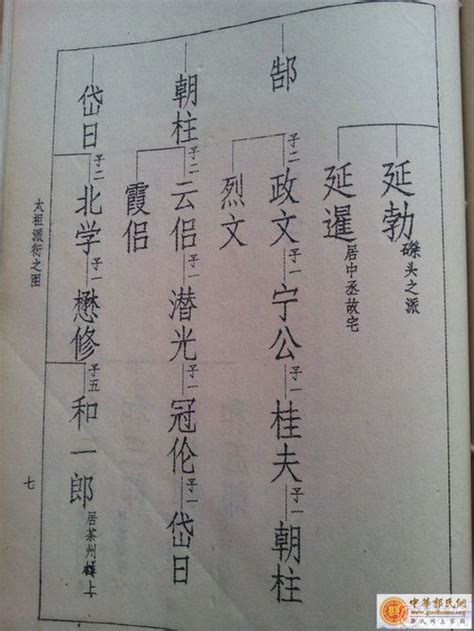 延勃 头之派
延暹 居中丞故宅
郜 子二 政文 子一 宁公 子一 桂夫 子一 朝柱
烈文
朝柱 子二 云侣 子一 潜光 子一 冠伦 子一 岱日
霞侣
岱日 子二 北学 子一 懋修 子五 和一郎 居茶州 上
太祖派衍之图
七
中華郭氏網